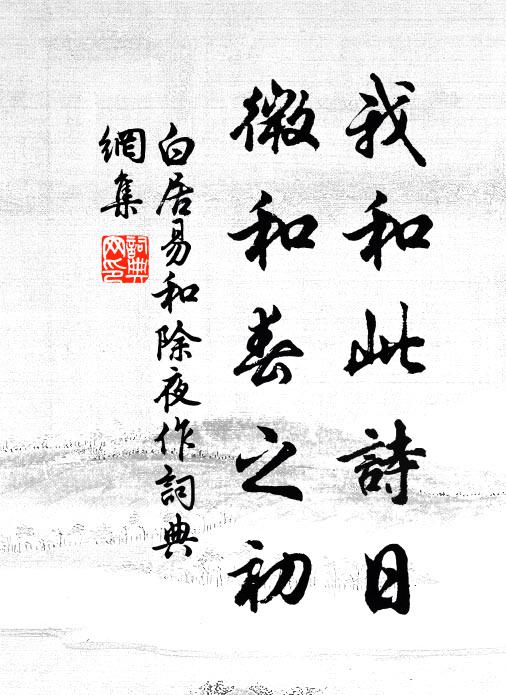 我和此詩日
微和春之初
白居易和除夜作詞典
網集
詞典网印